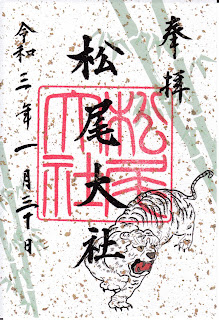 奉拝
松尾大社
松尾
大社
令和三年一月三十日